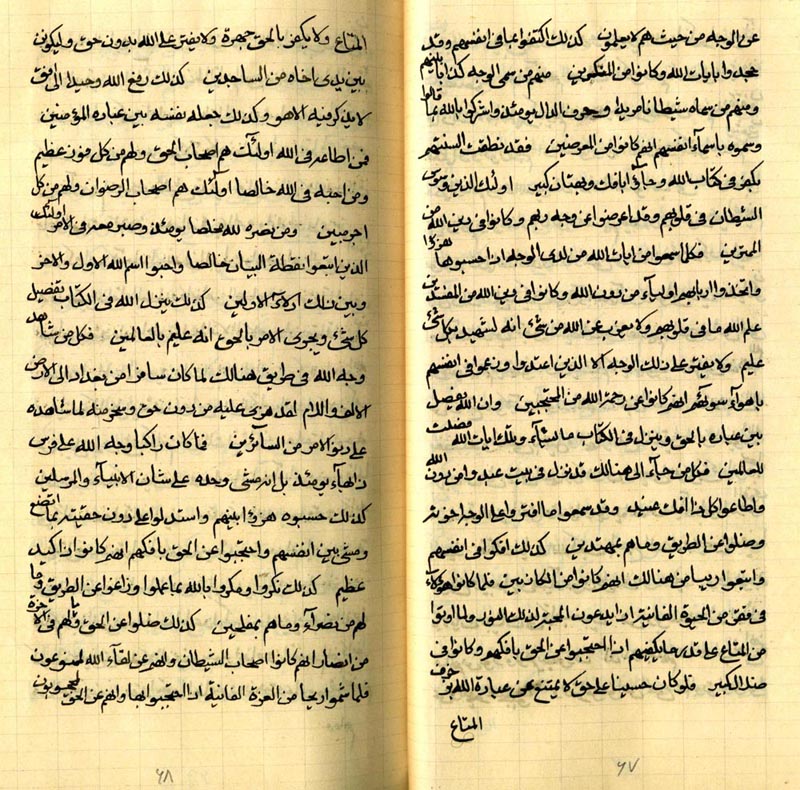 عن الوجه من حيث هم لا يعلمون كذلك اكتفوا بما فى انفسهم وقد
جحدوا بايات الله وكانوا من المنكرين منهم من سمى الوجه كذابا بينهم
ومنهم من سماه شيطانا مريدا وحرف الدال يومئذ واشركوا بالله بما قالوا
وسموه باسمآء انفسهم انهم كانوا من المعرضين فقد نطقت السنتهم
بكفر فى كتاب الله وجاؤا بافك وبهتان كبير اولئك الذين وسوس
الشيطان فى قلوبهم وقد اعرضوا عن وجه ربهم وكانوا فى دين الله من
الممترين فكلما سمعوا من ايات الله من لدى الوجه اذا حسبوها هزوا
واتخذوا اربابهم اولياء من دون الله وكانوا فى دين الله من المفسدين
علم الله ما فى قلوبهم ولا يعزب عن الله من شئ انه لشهيد بكل شئ
عليم ولا يفتر على ذلك الوجه الا الذين اعتدوا وزعموا فى انفسهم
باهوآء سوئهم انهم كانوا عن رحمة الله من المحتجبين وان الله يفصل
بين عباده بالحق وينزل فى الكتاب ما يشآء وتلك ايات الله فصلت
للعالمين فكل من جآء الى هنالك قد نزل فى بيت عبد وامن بدون الله
واطاعوا كل ذا افك عنيد وقد سمعوا ما افتروا على الوجه
وضلوا عن الطريق وما هم بمهتدين كذلك افكوا فى انفسهم
واتبعوا من هنالك انهم كانوا من الكاذبين فلما كانوا هؤلاء
فى من الحيوة الفانية اذا يدعون لذلك ولما اوتوا
من المتاع على قدر ما يكفيهم اذا احتجبوا عن الحق بافكهم وكانوا فى
صد الكبير فلو كان حسينا على حق لا يمتنع عن عبادة الله بزخرف
المتاع
٦٧
المتاع ولا يكفر بالحق جهرة ولا يفتر على الله بدون حق وليكونن
بين يدى اخاه من الساجدين كذلك رفع الله وحيدا الى افق
لا يذكر فيه الا هو وكذلك جعله بنفسه بين عباده المؤمنين
فمن اطاعه فى الله اولئك هم اصحاب الحق ولهم من كل فوز عظيم
ومن احبه فى الله خالصا اولئك هم اصحاب الرضوان ولهم من كل
اجر مبين ومن نصره لله مخلصا يومئذ وصبر معه فى الامر اولئك
الذين اتبعوا نقطة البيان خالصا واحبوا اسم الله الاول والاخر
وبين ذلك ادلاء الاولين كذلك ينزل الله فى الكتاب تفصيل
كل شئ ويجرى الامر بالحق انه عليم بالعالمين فكل من شاهد
وجه الله فى طريق هنالك لما كان سافرا من بغداد الى الارض
الالف والدام لقد هزئ عليه من دون حق وسخر منه لما شاهده
على ديق الامر من السآئرين فما كان راكبا وجه الله على فرس
ذا بهآء يومئذ بل انه مشى وحده على شان الانبيآء والمرسلين
كذلك حسبوه هزؤا بينهم واستدلوا على دون حقيته بما اتضع
ومشى بين انفسهم واحتجبوا عن الحق بافكهم انهم كانوا ذا كيد
عظيم كذلك نكروا ومكروا بالله بما عملوا وزاغوا عن الطريق وما
لهم من نصرآء وما هم بمفلحين كذلك ضلوا عن الحق ما لهم فى الاخرة
من انصار انهم كانوا اصحاب الشيطان وانهم عن لقآء الله لممنوعون
فلما شموا ريحا من العزة الفانية اذا احتجبوا بها وانهم عن الحق لمحجوبون
٦٨